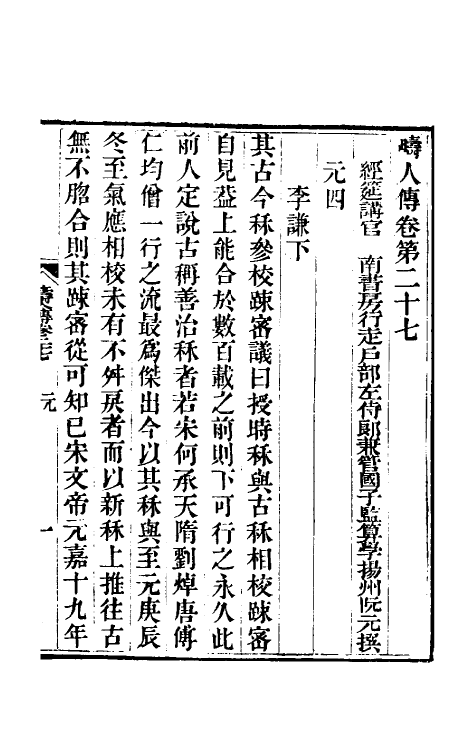 疇人傳卷第二十七
經筵講官　南書房行走戶部左侍郎兼管國子監算學揚州阮元撰
元四
李謙下
其古今秝參校踈審議曰授時秝與古秝相校踈審
自見葢上能合於數百載之前則下可行之永久此
前人定說古稱善治秝者若宋何承天隋劉焯唐傅
仁均僧一行之流最爲傑出今以其秝與至元庚辰
冬至氣應相校未有不舛戾者而以新秝上推往古
無不脗合則其踈審從可知已宋文帝元嘉十九年
疇人傳卷二十七
元
一